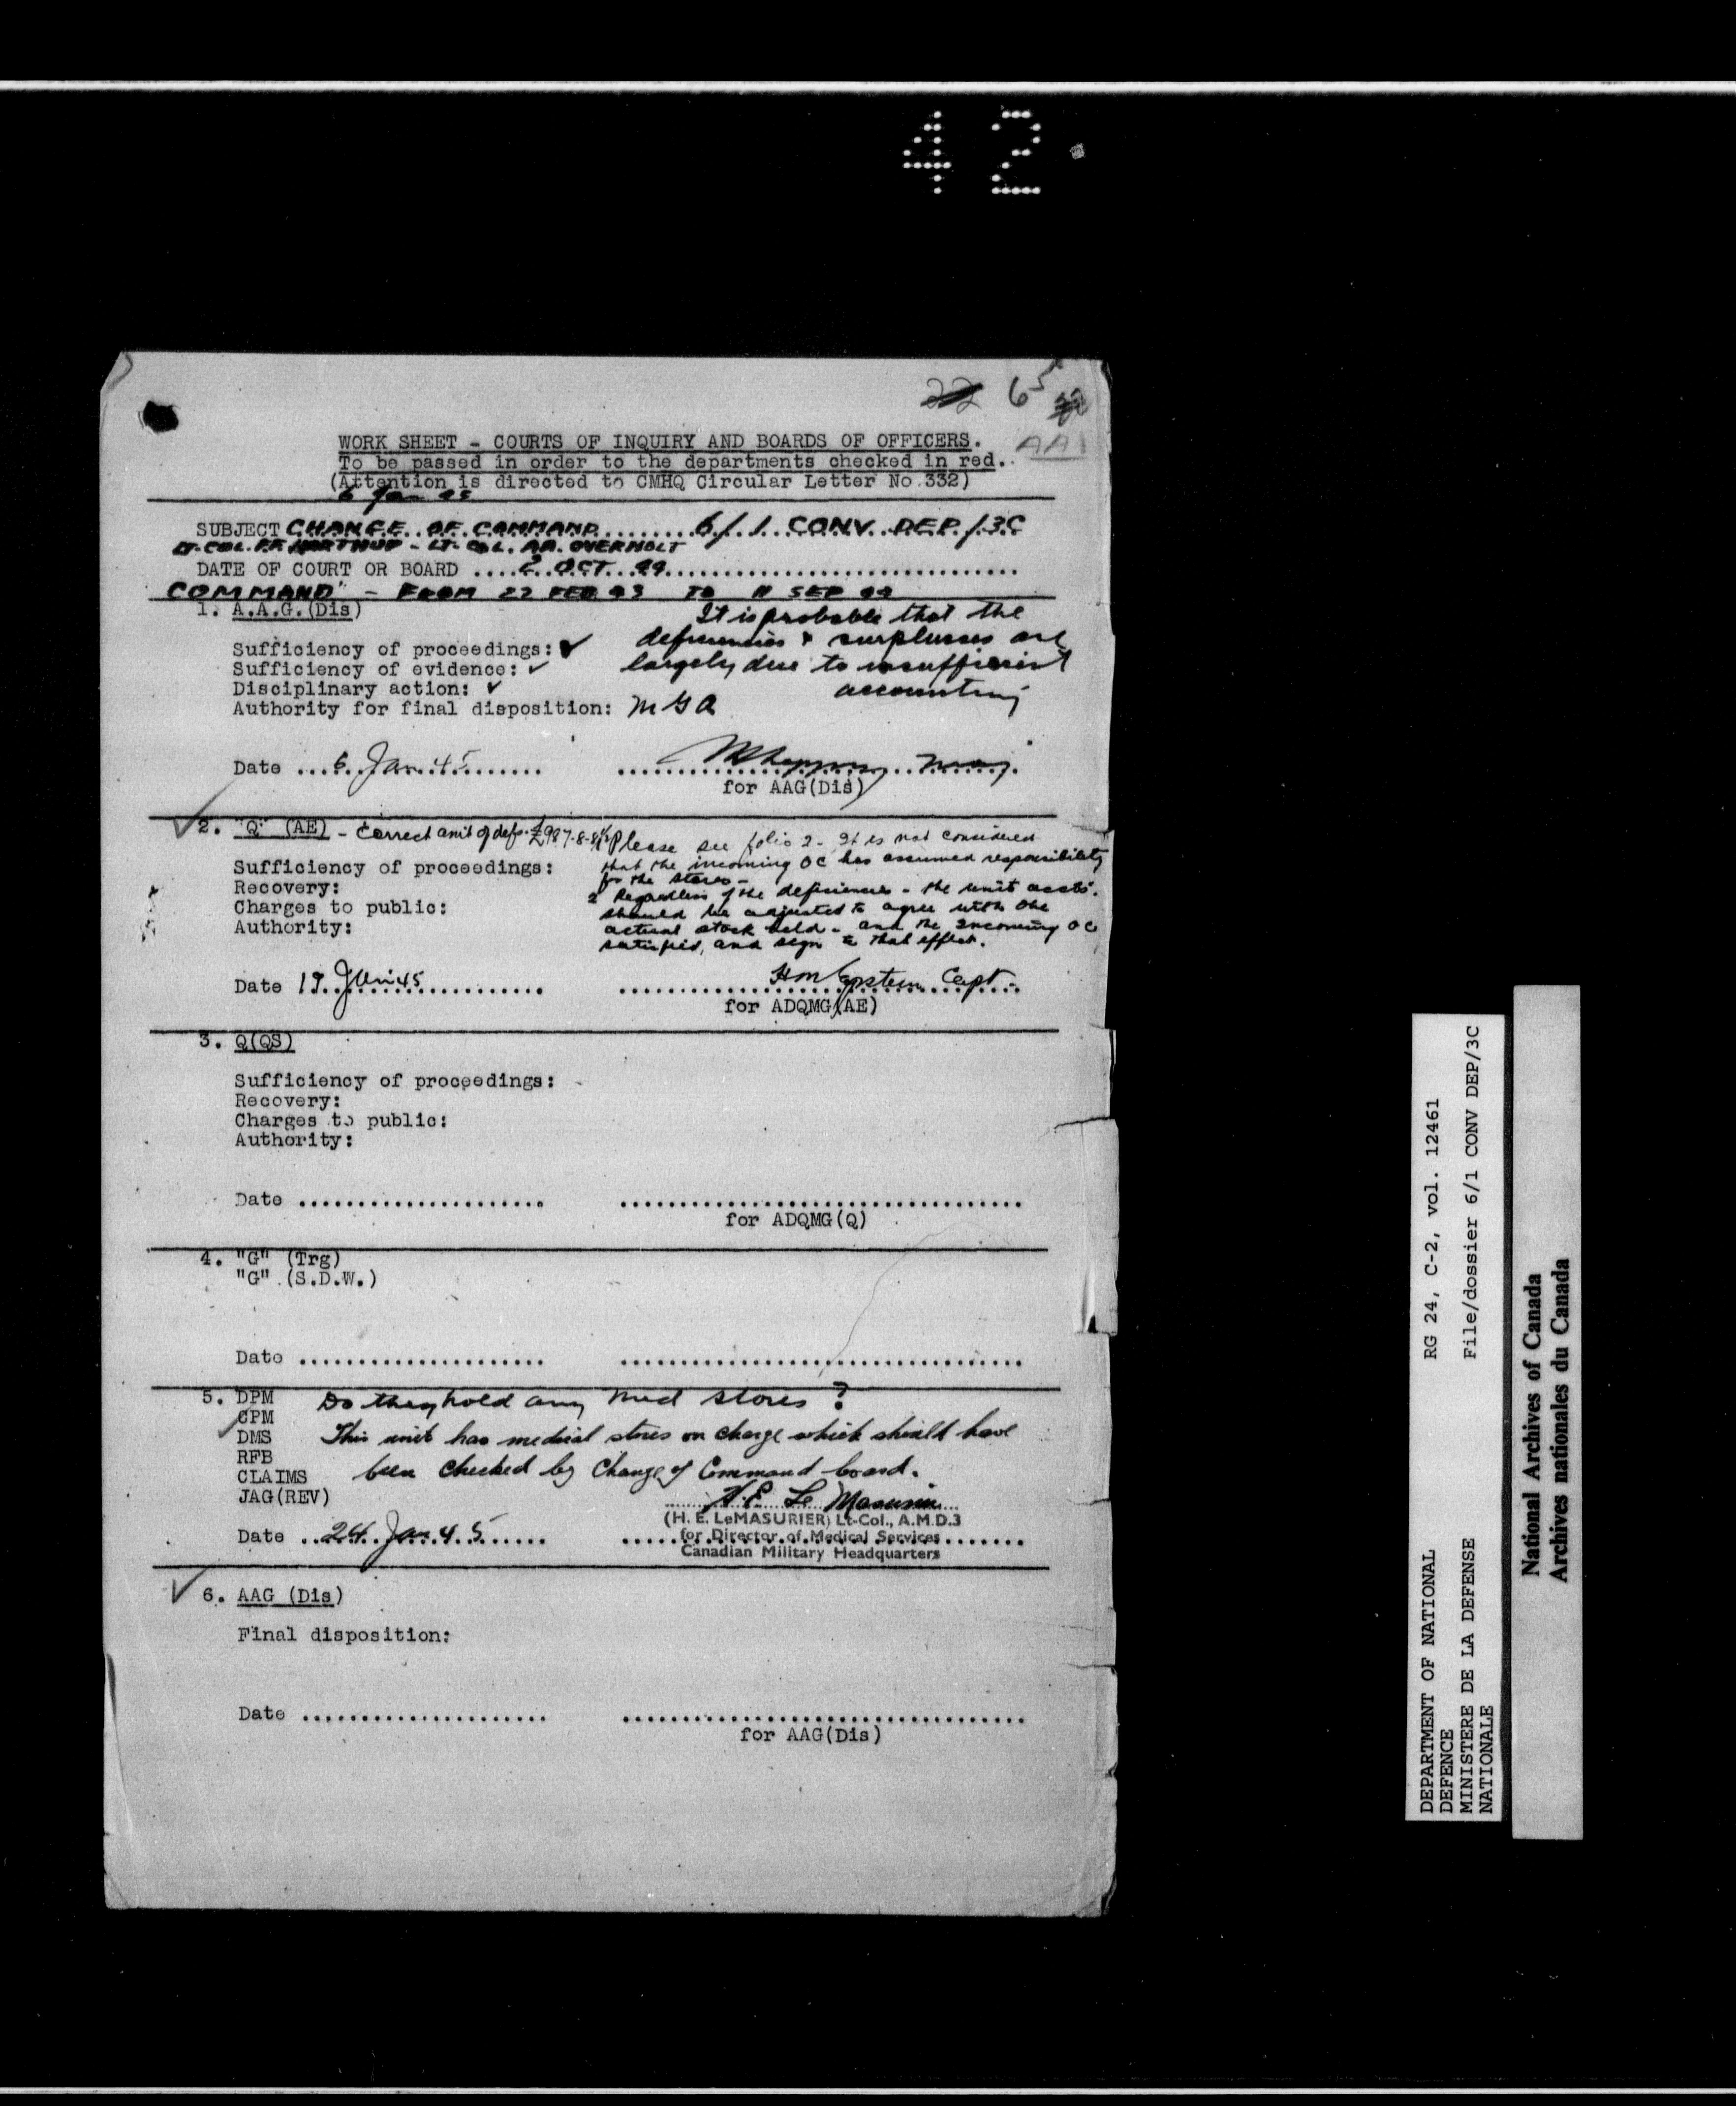 42
22 65
AA1
WORK SHEET - COURTS OF INQUIRY AND BOARDS OF OFFICERS.
To be passed in order to the departments checked in red.
(Attention is directed to CMHQ Circular Letter No.332)
6 Jan 45
SUBJECT CHANGE OF COMMAND........6/1 CONV DEP/3C
LT-COL. F.F. HARTHUP - LT-COL. AA. OVERHOLT
DATE OF COURT OR BOARD ....2 OCT 44..............................
COMMAND" - FROM 22 FEB 43 TO 11 SEP 44
1. A.A.G.(Dis)
It is probable that the
deficiencies & surplusses are
Sufficiency of proceedings: ✓
largely due to insufficient
Sufficiency of evidence: ✓
accounting
Disciplinary action: ✓
Authority for final disposition: MGA
Date ...6 Jan 45......... ..................... Maj.
for AAG(Dis)
2. "Q" (AE) - Correct amt of defs. £987-8-8½
Please see folio 2. It is not considered
that the incoming OC has assumed responsibility
for the stores -
2 Regardless of the deficiencies - the unit accts.
should be adjusted to agree with the
actual stock held - and the incoming OC
satisfied, and sign to that effect.
Sufficiency of proceedings:
Recovery:
Charges to public:
Authority:
Date 19 Jan 45.............. HM Epstein Capt.
for ADQMG(AE)
3. Q(QS)
Sufficiency of proceedings:
Recovery:
Charges to public:
Authority:
Date ..................... ..................................
for ADQMG(Q)
4. "G" (Trg)
"G" (S.D.W.)
Date ..................... ..................................
5. DPM Do they hold any med stores?
CPM
DMS This unit has medical stores on charge which should have
RFB
CLAIMS been checked by Change of Command board.
JAG(REV) H.E. Le Masurier
(H. E. LeMASURIER) Lt-Col., A.M.D.3
Date ..24 Jan 45....... for Director of Medical Services
Canadian Military Headquarters
6. AAG (Dis)
Final disposition:
Date ..................... ..................................
for AAG(Dis)
DEPARTMENT OF NATIONAL RG 24, C-2, vol. 12461
DEFENCE
MINISTERE DE LA DEFENSE File/dossier 6/1 CONV DEP/3C
NATIONALE
National Archives of Canada
Archives nationales du Canada